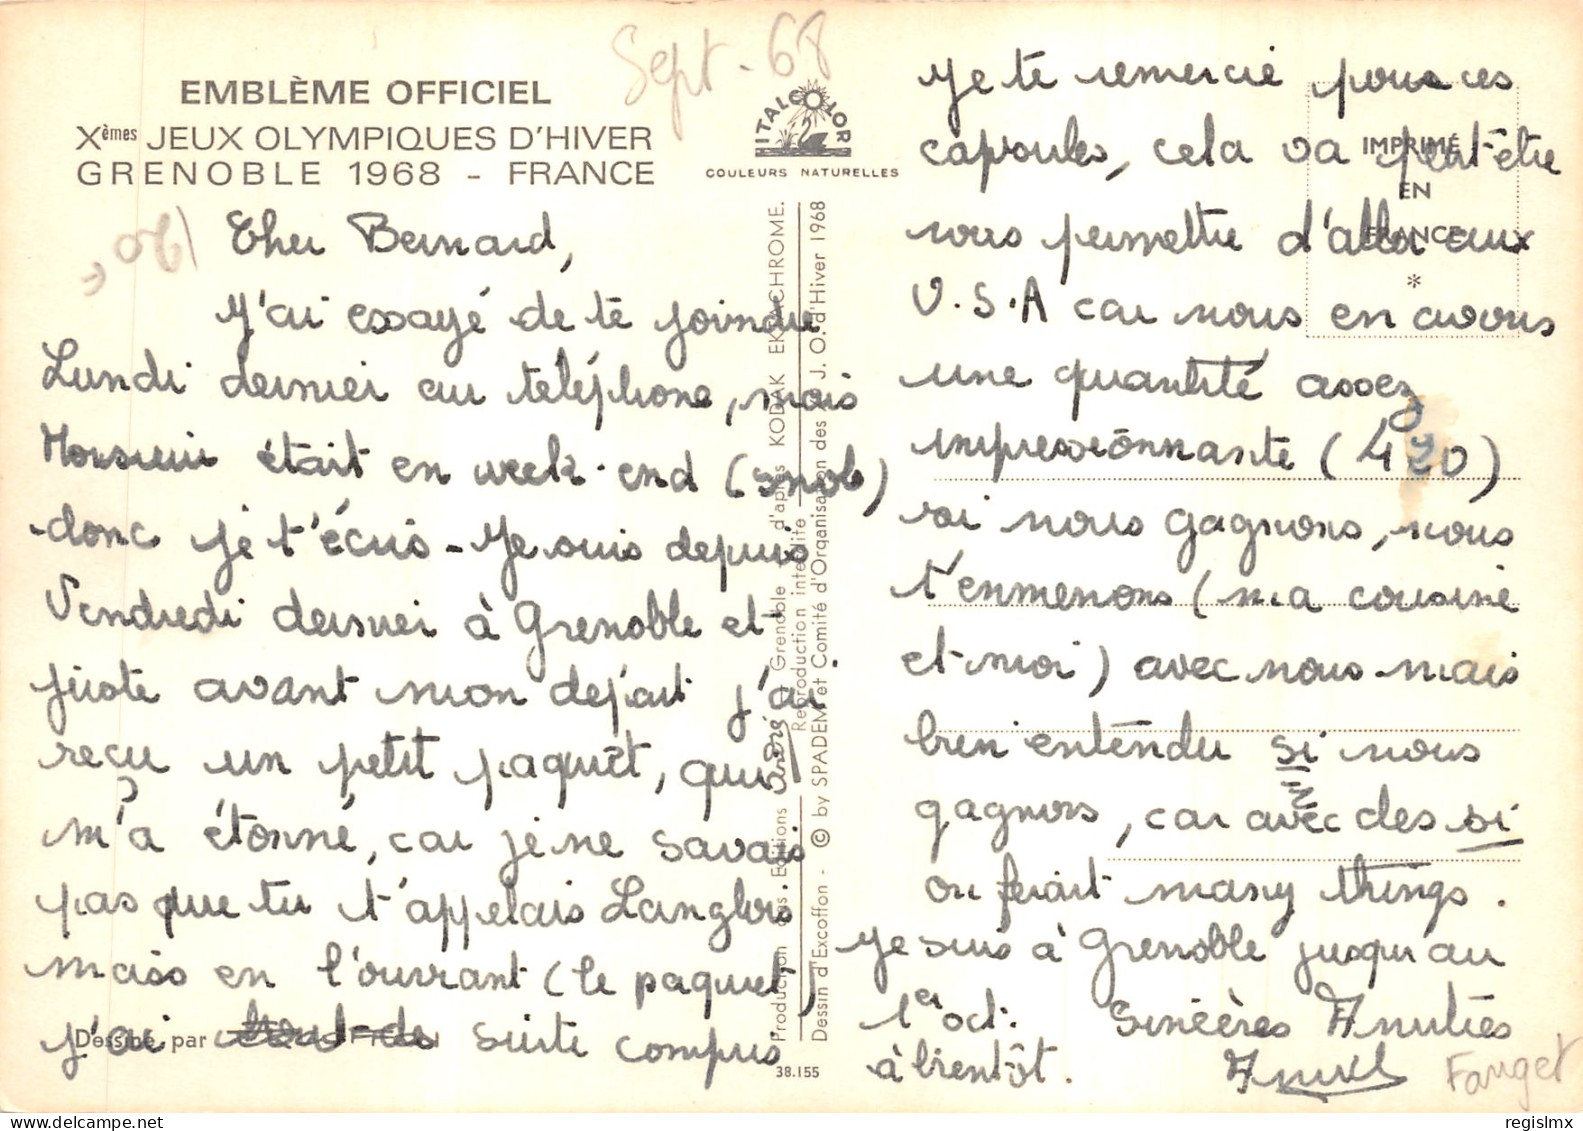 Sept - 68
EMBLÈME OFFICIEL
Xèmes JEUX OLYMPIQUES D'HIVER
GRENOBLE 1968 - FRANCE
ITALCOLOR
COULEURS NATURELLES
IMPRIMÉ
EN
FRANCE
*
Cher Bernard,
J'ai essayé de te joindre
Lundi dernier au téléphone, mais
Monsieur était en week-end (snob)
donc je t'écris - Je suis depuis
Vendredi dernier à Grenoble et
juste avant mon départ j'ai
reçu un petit paquet, qui
m'a étonné, car je ne savais
pas que tu t'appelais Langlois
mais en l'ouvrant (le paquet)
j'ai tout de suite compris
Dessiné par
Production des Editions André, Grenoble d'après KODAK EKTACHROME.
Reproduction interdite
Dessin d'Excoffon - © by SPADEM et Comité d'Organisation des J. O. d'Hiver 1968
38.155
Je te remercie pour ces
capsules, cela va peut-être
nous permettre d'aller aux
U.S.A car nous en avons
une quantité assez
impressionnante (420)
si nous gagnons, nous
t'enmenons (ma cousine
et moi) avec nous mais
bien entendu si nous
gagnons, car avec des si
on ferait many things.
Je suis à Grenoble jusqu'au
1er oct. Sincères Amitiés
à bientôt.
Fauget
regislmx
delcampe.net